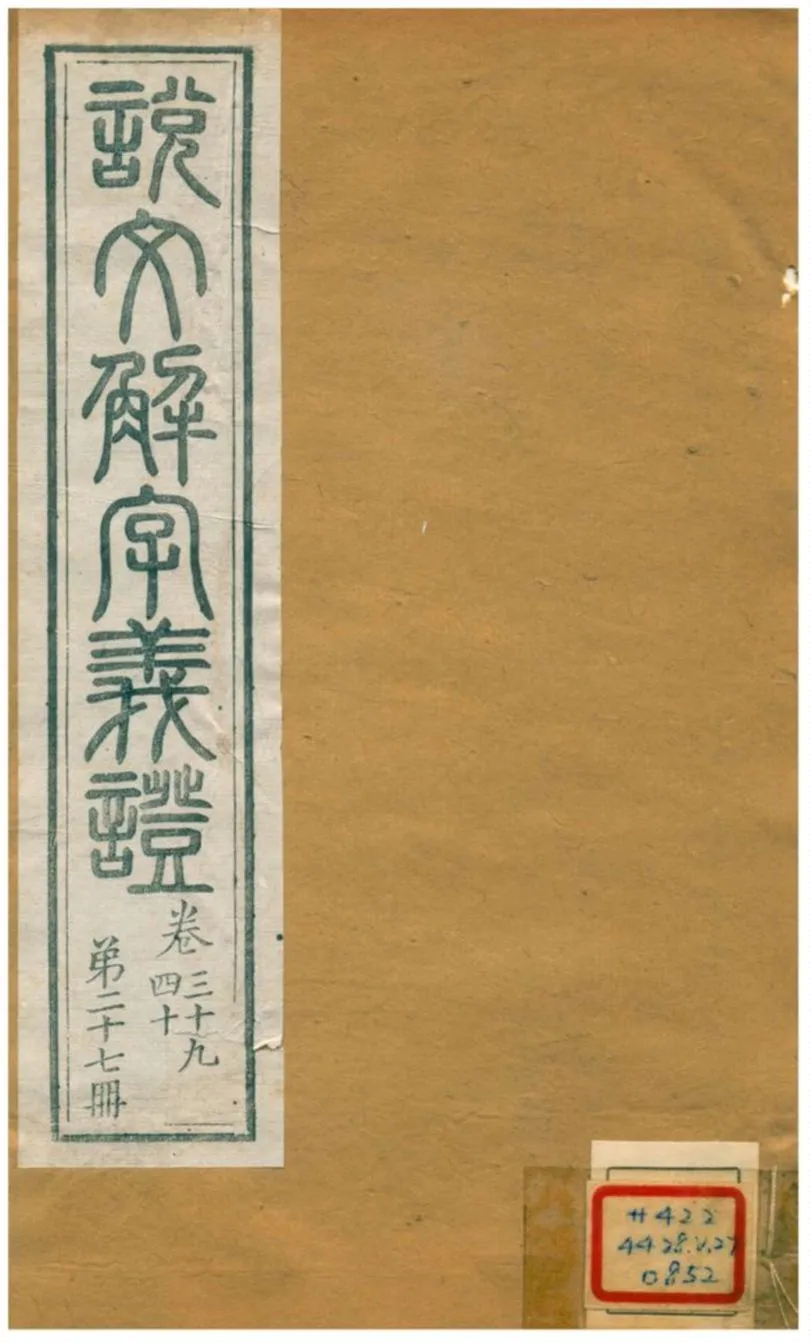 說文解字義證
卷三十九
四十
弟二十七冊
H422
4428.V.27
0852